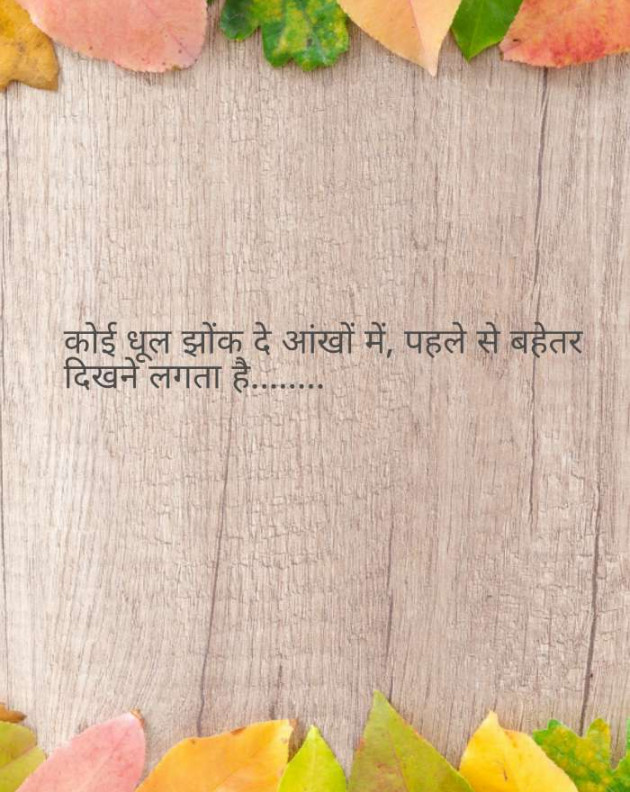 कोई धूल झोंक दे आंखों में, पहले से बहेतर
दिखने लगता है........